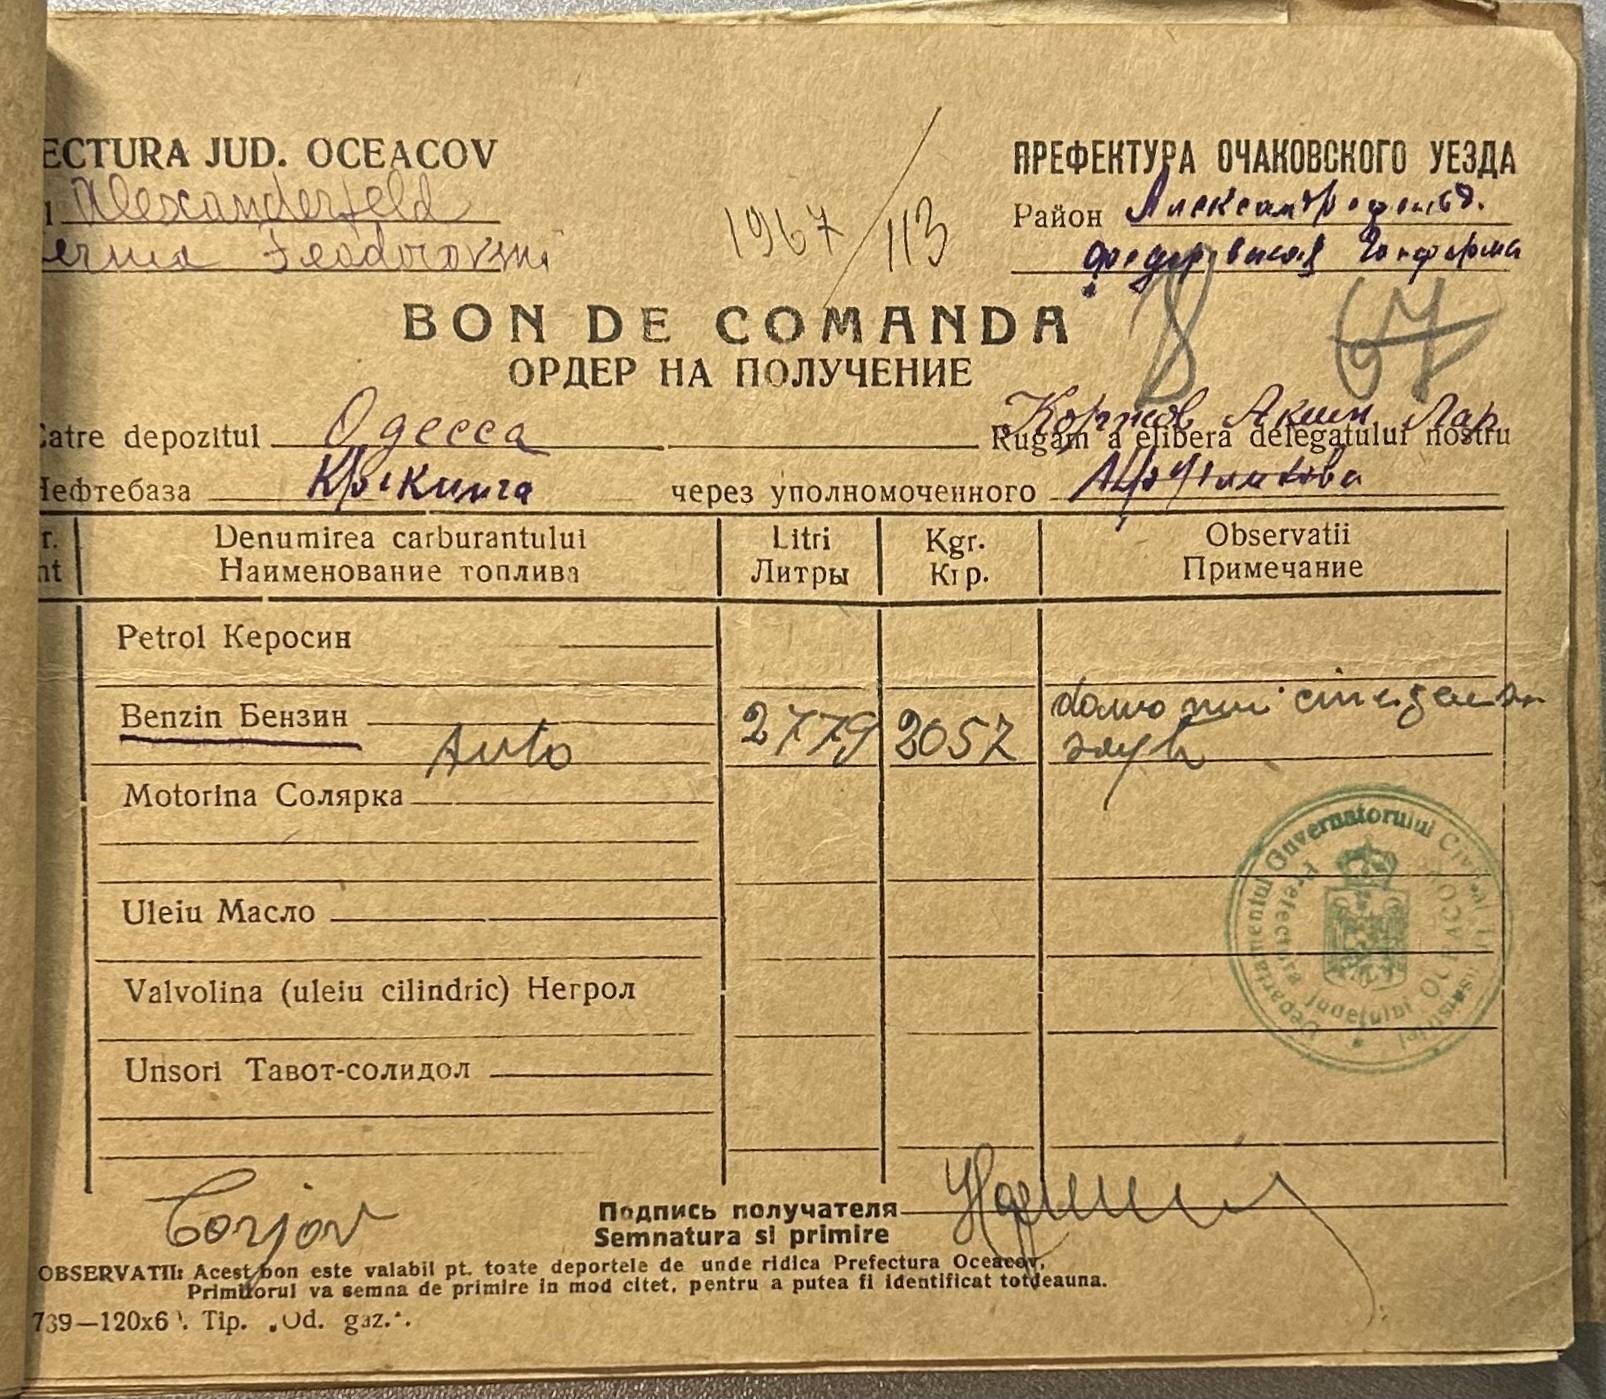 ECTURA JUD. OCEACOV
Alexanderfeld
Feodorovsni
1967/113
ПРЕФЕКТУРА ОЧАКОВСКОГО УЕЗДА
Район Александрофельд.
Федоровская
8 67
BON DE COMANDA
ОРДЕР НА ПОЛУЧЕНИЕ
Catre depozitul Одесса Rugam a elibera delegatului nostru Коржов Аким Лар
Нефтебаза Крекинга через уполномоченного
r. Denumirea carburantului Litri Kgr. Observatii
nt Наименование топлива Литры Кгр. Примечание
Petrol Керосин
Benzin Бензин Auto 2779 2057
Motorina Солярка
Uleiu Масло
Valvolina (uleiu cilindric) Негрол
Unsori Тавот-солидол
Departamentul Guvernatorului Civil al Transnistriei
Prefectura Județului OCEACOV
Corjov
Подпись получателя
Semnatura si primire
OBSERVATII: Acest bon este valabil pt. toate deportele de unde ridica Prefectura Oceacov,
Primitorul va semna de primire in mod citet, pentru a putea fi identificat totdeauna.
739—120x6 . Tip. „Od. gaz.".